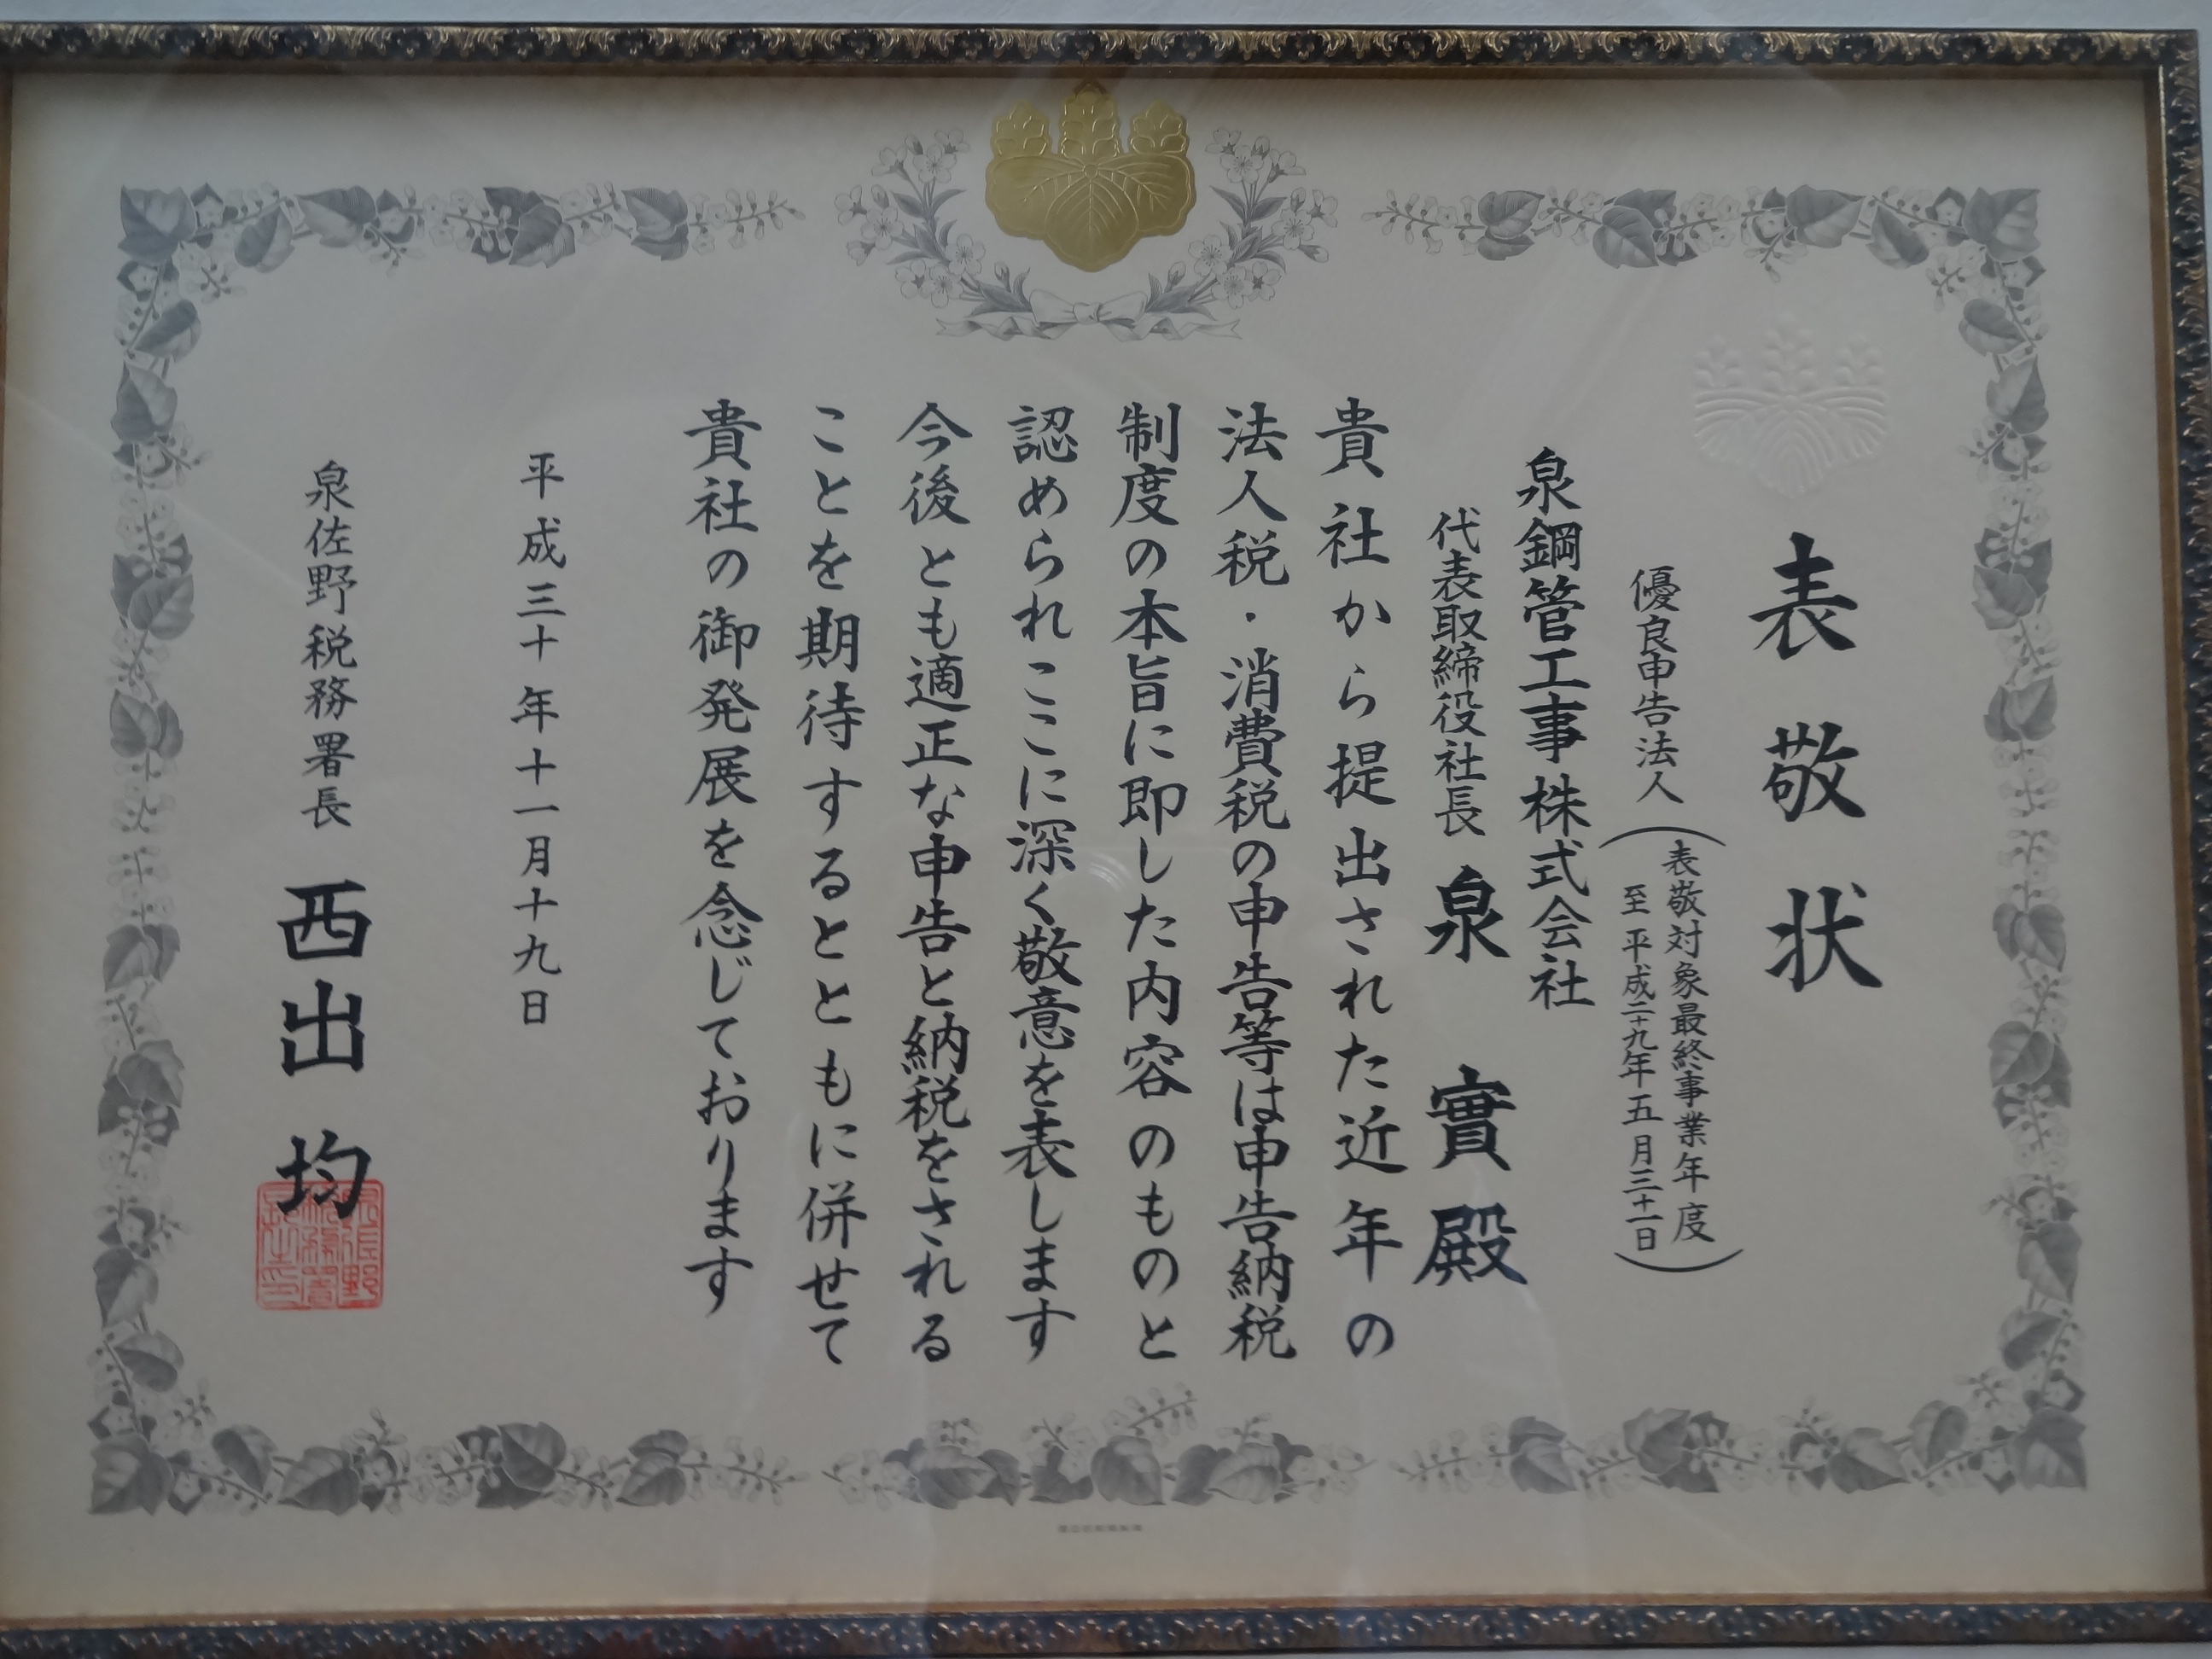 表敬状
優良申告法人
(表敬対象最終事業年度
至平成二十九年五月三十一日)
泉鋼管工事株式会社
代表取締役社長 泉 實 殿
貴社から提出された近年の
法人税・消費税の申告等は申告納税
制度の本旨に即した内容のものと
認められここに深く敬意を表します
今後とも適正な申告と納税をされる
ことを期待するとともに併せて
貴社の御発展を念じております
平成三十年十一月十九日
泉佐野税務署長 西出 均